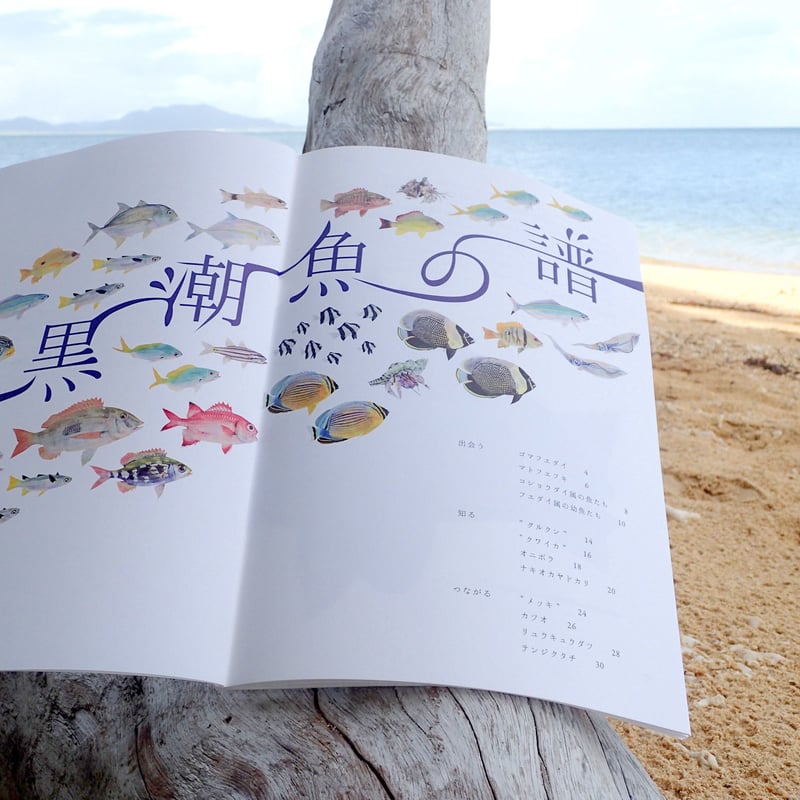 黒潮魚の譜
出会う
ゴマフエダイ 4
マトフエフキ 6
コショウダイ属の魚たち 8
フエダイ属の幼魚たち 10
知る
"グルクン" 14
"クワイカ" 16
オニボラ 18
ナキオカヤドカリ 20
つながる
"メッキ" 24
カツオ 26
リュウキュウダツ 28
テンジクタチ 30